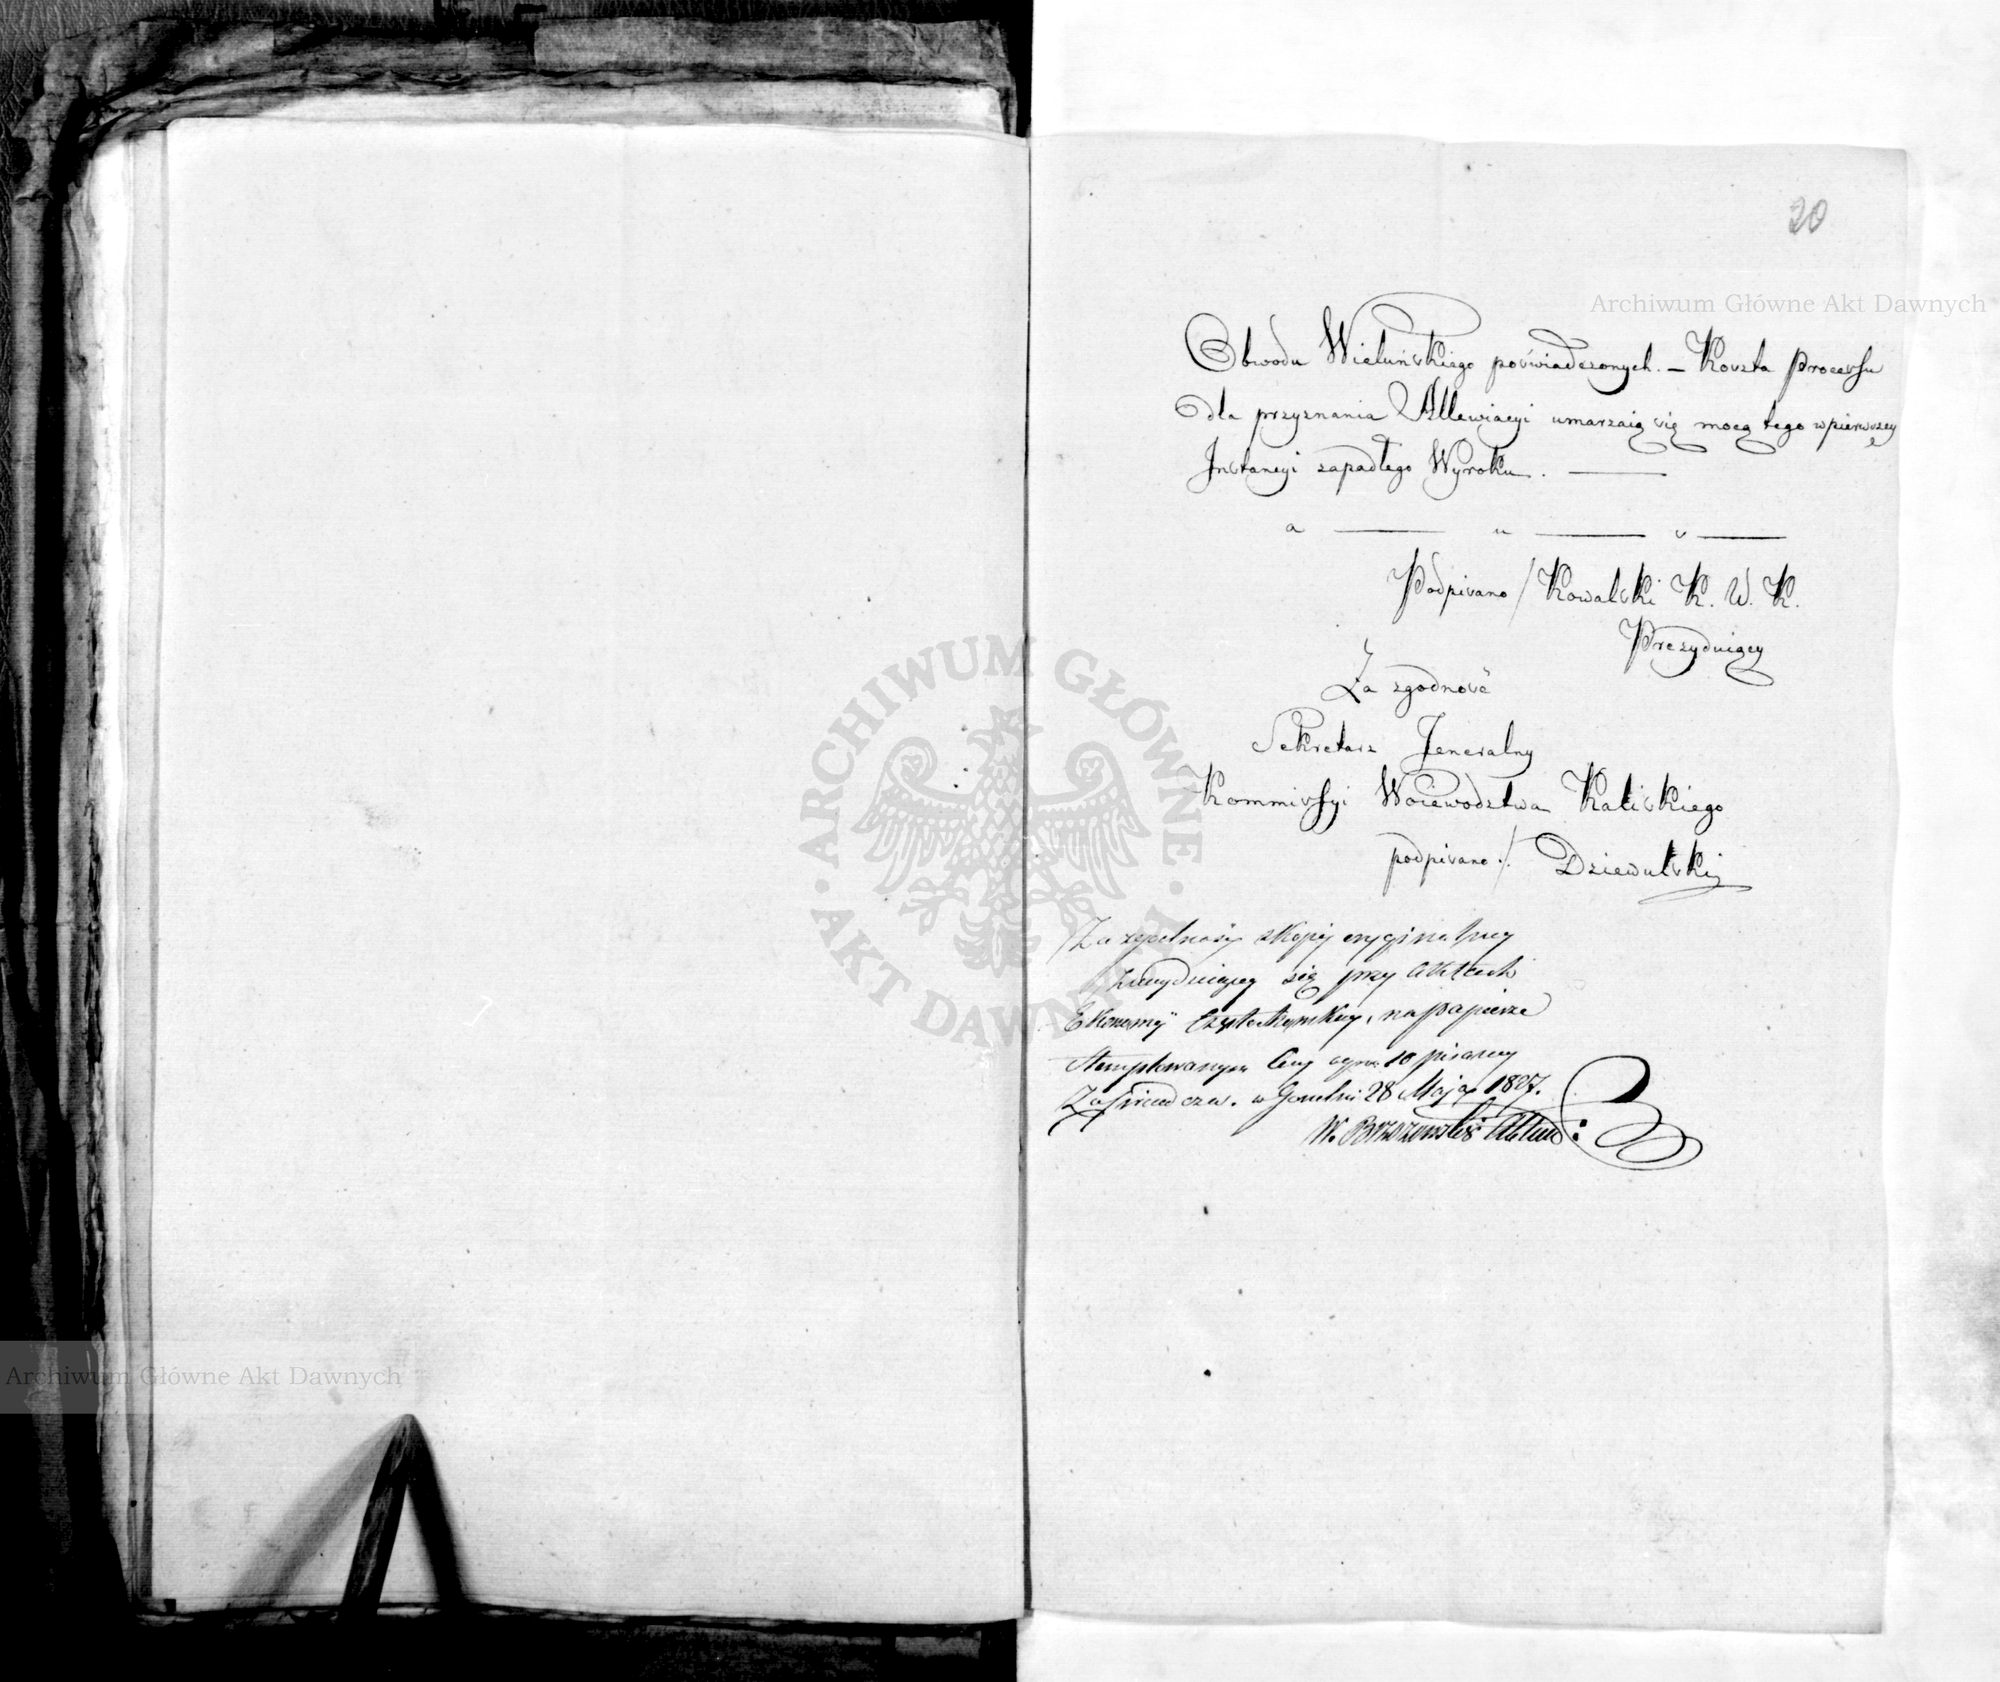 20
Archiwum Główne Akt Dawnych
Obwodu Wieluńskiego poświadczonych. – Koszta Processu
dla przyznania Allewiacyi umarzaią się mocą tego w pierwszey
Instancyi zapadłego Wyroku. —
a — u — u —
Podpisano / Kowalski K. W. K.
Prezyduiący
Za zgodność
Sekretarz Jeneralny
Kommissyi Woiewodztwa Kaliskiego
podpisano ./. Dziewulski
Za zgodność z kopij oryginalney
znayduiącey się przy Aktach
Ekonomij na papierze
Stemplowanym Ceny 10 pisaney
Zaświadcza. w 28 Maja 1827.
W. Brzozowski
ARCHIWUM GŁÓWNE · AKT DAWNYCH ·
Archiwum Główne Akt Dawnych